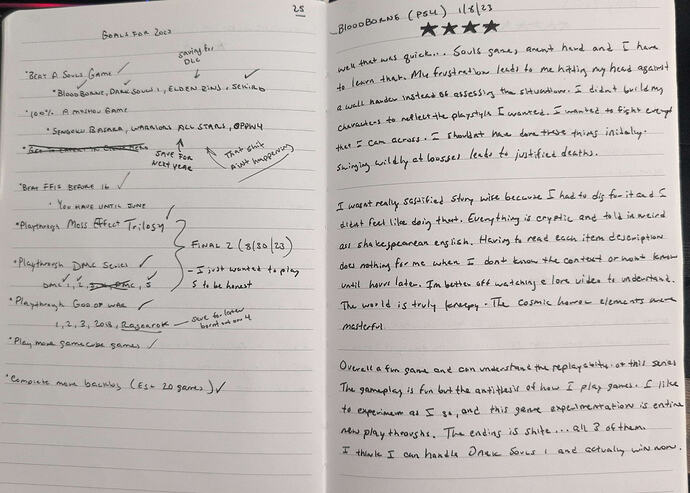 25
GOALS FOR 2023
saving for
DLC
• BEAT A SOULS GAME
• BLOODBORNE, DARK SOULS 1, ELDEN RING, SEKIRO
• 100% A MUSOU GAME
• SENGOKU BASARA, WARRIORS ALL STARS, OPPW4
SAVE FOR
NEXT YEAR
That shit
Aint happening
• BEAT FF15 BEFORE 16
• YOU HAVE UNTIL JUNE
• Playthrough Mass Effect Trilogy
FINAL 2 (8/30/23)
- I just wanted to play
5 to be honest
• Playthrough DMC Series
DMC 1, 2, 5
• Playthrough GOD OF WAR
1, 2, 3, 2018, Ragnarok
save for later
burnt out on 4
• Play more gamecube games
• Complete more backlog (Est 20 games)
BLOODBORNE (PS4) 1/8/23
★★★★
Well that was quick... Souls games arent hard and I have
to learn that. My frustration leads to me hitting my head against
a wall harder instead of assessing the situation. I didnt build my
characters to reflect the playstyle I wanted. I wanted to fight every
that I came across. I shouldnt have done these things initialy.
Swinging wildly at bosses leads to justified deaths.
I wasnt really satisfied story wise because I had to dig for it and I
didnt feel like doing that. Everything is cryptic and told in weird
ass shakespearean english. Having to read each item description
does nothing for me when I dont know the context or wont know
until hours later. Im better off watching a lore video to understand.
The world is truly creepy. The cosmic horror elements were
masterful
Overall a fun game and can understand the replayability of this series
The gameplay is fun but the antithesis of how I play games. I like
to experiment as I go, and this game experimentation is entire
new playthroughs. The ending is shite... all 3 of them.
I think I can handle Dark Souls 1 and actually win now.